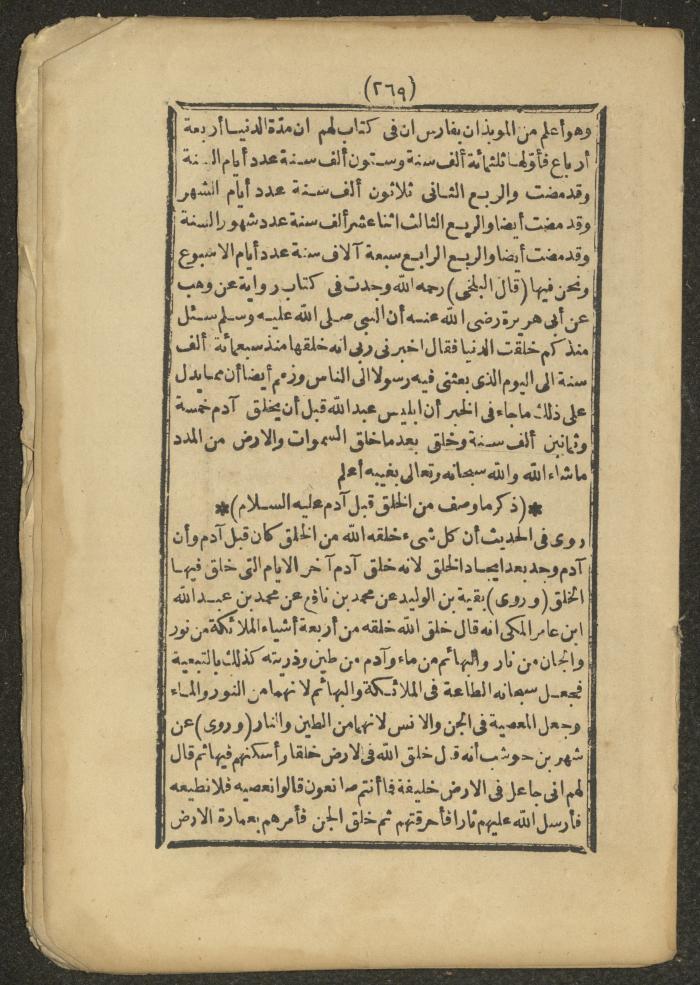 (٢٦٩)
وهو أعلم من الموبذان بفارس ان فى كتاب لهم ان مدّة الدنيا أربعة
أرباع فأوّلها ثلثمائة ألف سنة وستون ألف سنة عدد أيام السنة
وقد مضت والربع الثانى ثلاثون ألف سنة عدد أيام الشهر
وقد مضت أيضا والربع الثالث اثنا عشر ألف سنة عدد شهور السنة
وقد مضت أيضا والربع الرابع سبعة آلاف سنة عدد أيام الاسبوع
ونحن فيها (قال البلخى) رحمه الله وجدت فى كتاب رواية عن وهب
عن أبى هريرة رضى الله عنه أن النبى صلى الله عليه وسلم سئل
منذ كم خلقت الدنيا فقال اخبرنى ربى انه خلقها منذ سبعمائة ألف
سنة الى اليوم الذى بعثنى فيه رسولا الى الناس وزعم أيضا أن مما يدل
على ذلك ما جاء فى الخبر أن ابليس عبد الله قبل أن يخلق آدم خمسة
وثمانين ألف سنة وخلق بعد ما خلق السموات والارض من المدد
ما شاء الله والله سبحانه وتعالى بغيبه أعلم
*(ذكر ما وصف من الخلق قبل آدم عليه السلام)*
روى فى الحديث أن كل شىء خلقه الله من الخلق كان قبل آدم وأن
آدم وجد بعد ايجاد الخلق لانه خلق آدم آخر الايام التى خلق فيها
الخلق (وروى) بقية بن الوليد عن محمد بن نافع عن محمد بن عبد الله
ابن عامر المكى انه قال خلق الله خلقه من أربعة أشياء الملائكة من نور
والجان من نار والبهائم من ماء وآدم من طين وذريته كذلك بالتبعية
فجعل سبحانه الطاعة فى الملائكة والبهائم لانهما من النور والماء
وجعل المعصية فى الجن والانس لانهما من الطين والنار (وروى) عن
شهر بن حوشب أنه قال خلق الله فى الارض خلقا وأسكنهم فيها ثم قال
لهم انى جاعل فى الارض خليفة فما أنتم صانعون قالوا نعصيه فلا نطيعه
فأرسل الله عليهم نارا فأحرقتهم ثم خلق الجن فأمرهم بعمارة الارض